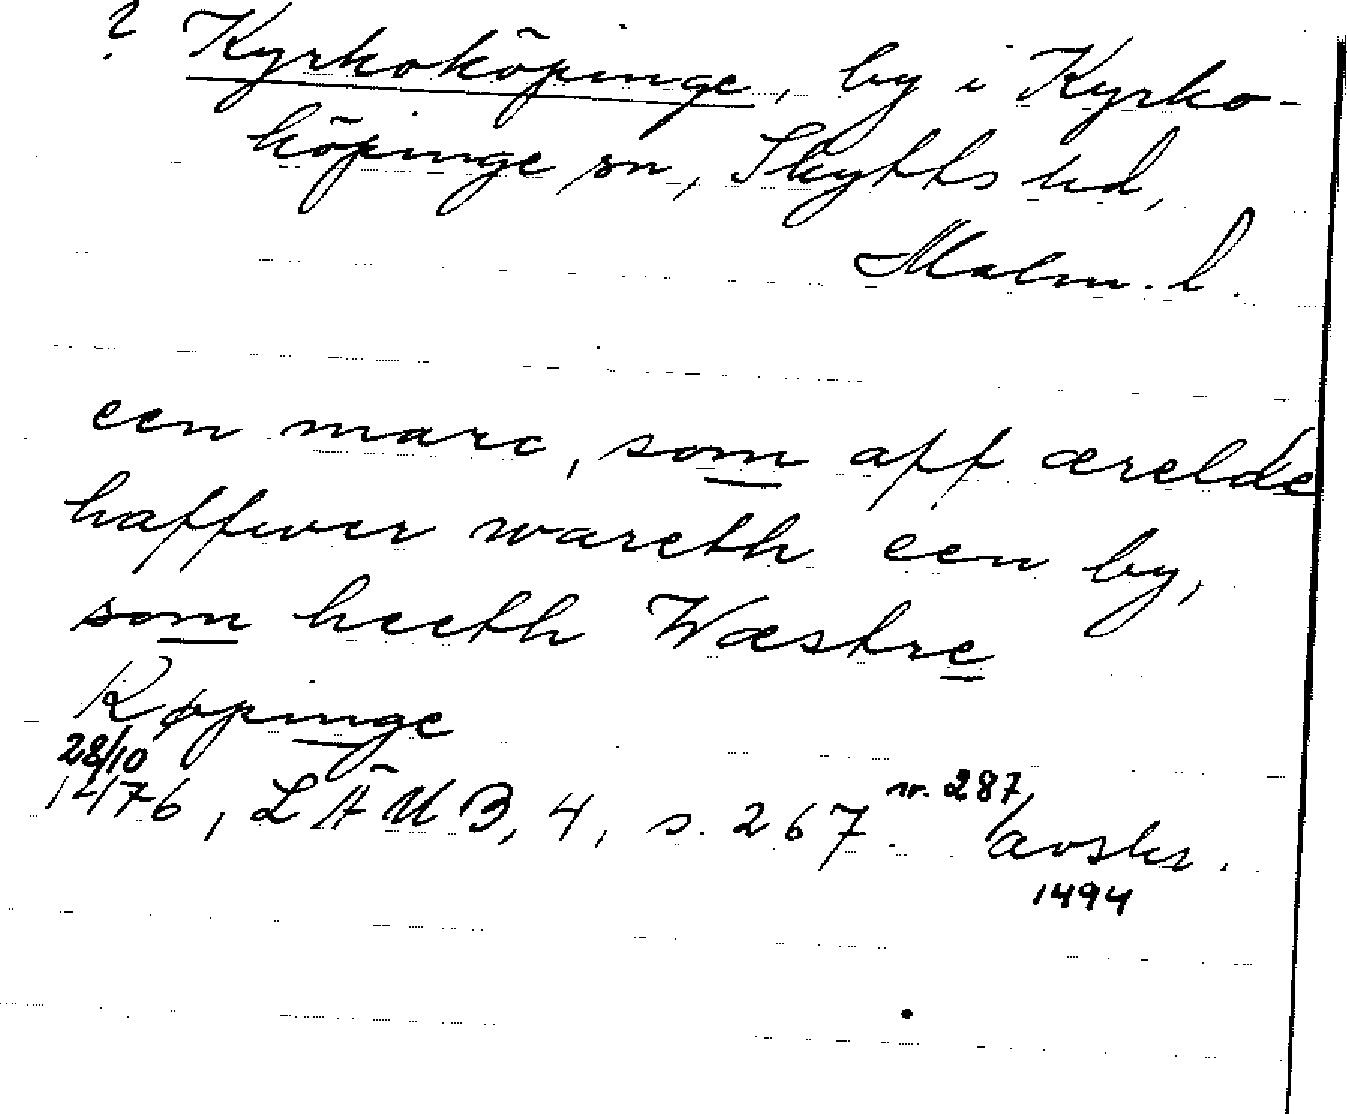 ? Kyrkoköpinge, by i Kyrko-
köpinge sn, Skytts hd,
Malm. l.
een marc, som aff ærelde
haffwer wareth een by,
som heeth Wæstre
Køpinge
28/10
1476, LÄUB, 4, s. 267 nr. 287, avskr.
1494